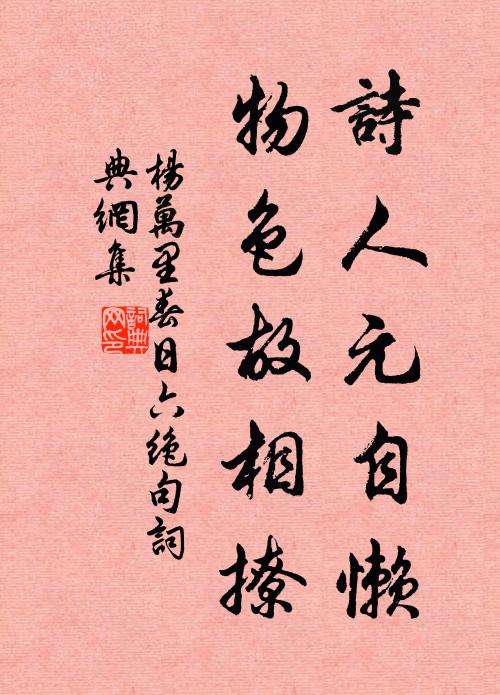 詩人元自懶
物色故相撩
楊萬里春日六絕句詞
典網集
詞典
网印